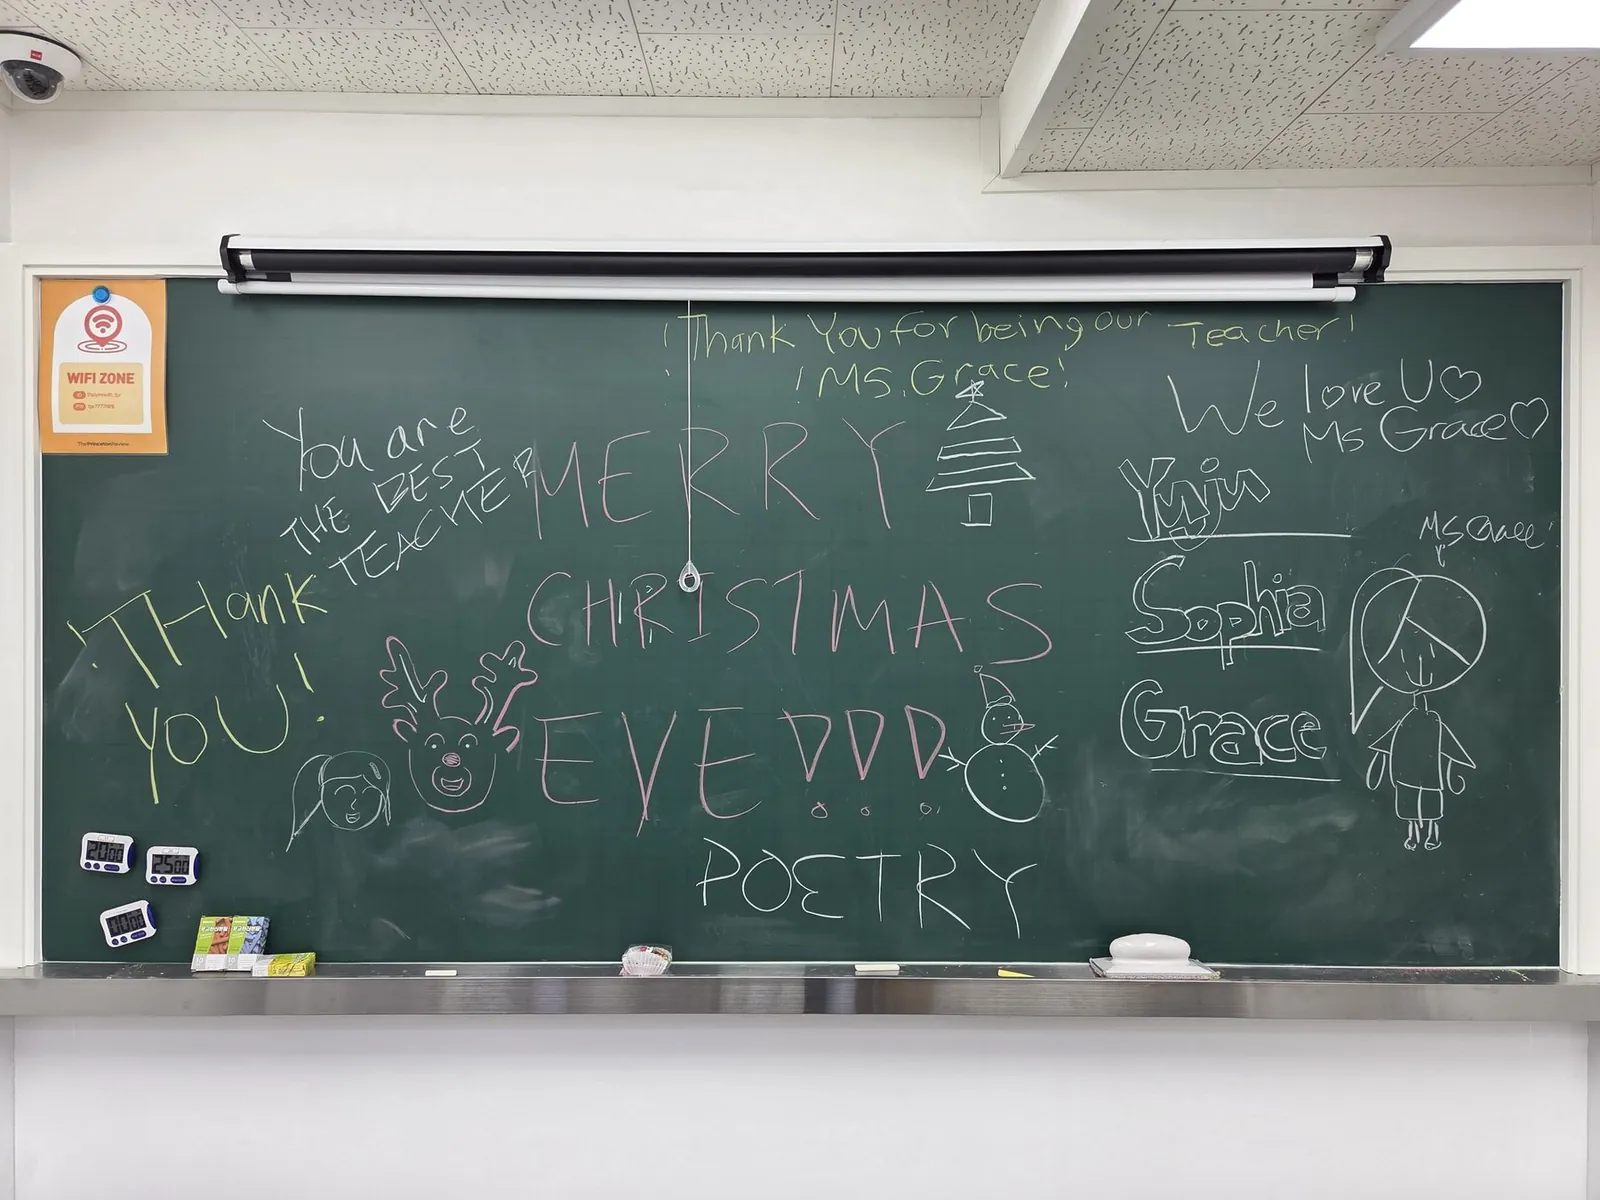 WIFI ZONE
ThePrincetonReview
!Thank You for being our Teacher!
!Ms. Grace!
We love U♡
Ms Grace♡
You are
THE BEST
TEACHER
MERRY
CHRISTMAS
EVE!!!
POETRY
!THank
YOU!
Yuju
Sophia
Grace
Ms Grace!
20:00
25:00